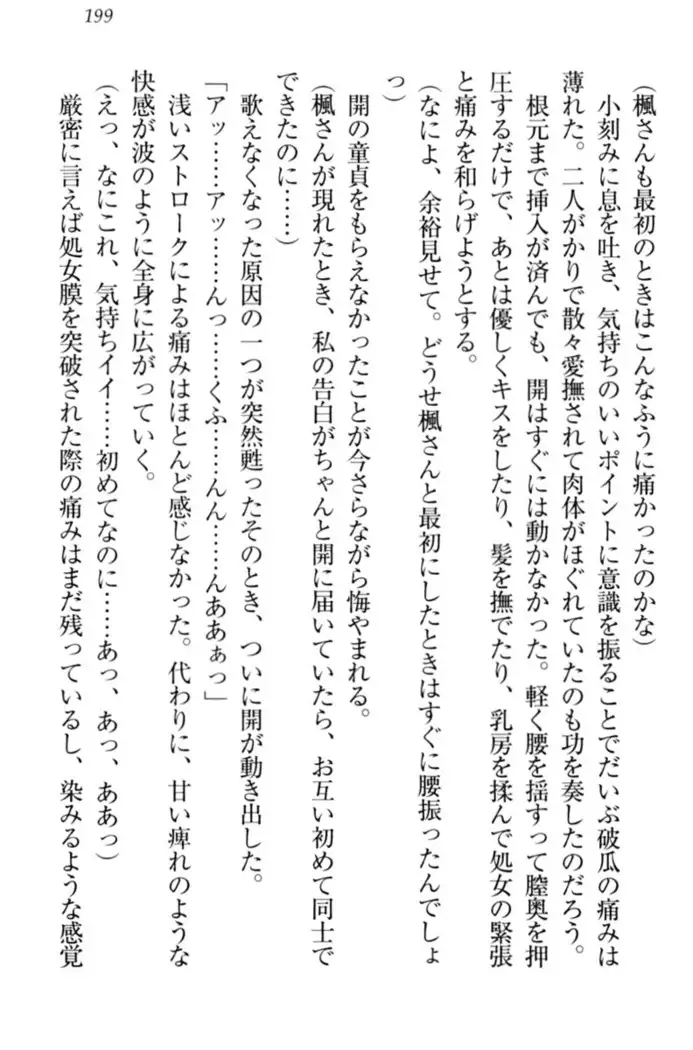 199
(楓さんも最初のときはこんなふうに痛かったのかな)
小刻みに息を吐き、気持ちのいいポイントに意識を振ることでだいぶ破瓜の痛みは
薄れた。二人がかりで散々愛撫されて肉体がほぐれていたのも功を奏したのだろう。
根元まで挿入が済んでも、開はすぐには動かなかった。軽く腰を揺すって膣奥を押
圧するだけで、あとは優しくキスをしたり、髪を撫でたり、乳房を揉んで処女の緊張
と痛みを和らげようとする。
(なによ、余裕見せて。どうせ楓さんと最初にしたときはすぐに腰振ったんでしょ
っ)
開の童貞をもらえなかったことが今さらながら悔やまれる。
(楓さんが現れたとき、私の告白がちゃんと開に届いていたら、お互い初めて同士で
できたのに……)
歌えなくなった原因の一つが突然甦ったそのとき、ついに開が動き出した。
「アッ……アッ……んっ……くふ……んん……んああぁっ」
浅いストロークによる痛みはほとんど感じなかった。代わりに、甘い痺れのような
快感が波のように全身に広がっていく。
(えっ、なにこれ、気持ちイイ……初めてなのに……あっ、あっ、ああっ)
厳密に言えば処女膜を突破された際の痛みはまだ残っているし、染みるような感覚